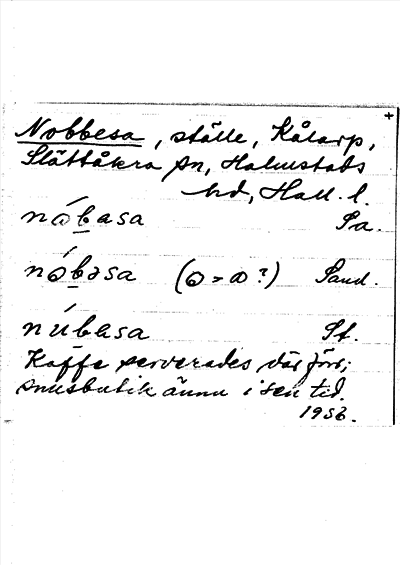 +
Nobbesa, ställe, Kålarp,
Slättåkra sn, Halmstads
hd, Hall. l.
nåbasa Sa.
nåbəsa (ɷ > ɷ ?) Sand.
nubasa St.
Kaffe serverades där förr;
snusbutik ännu i sen tid.
1956.